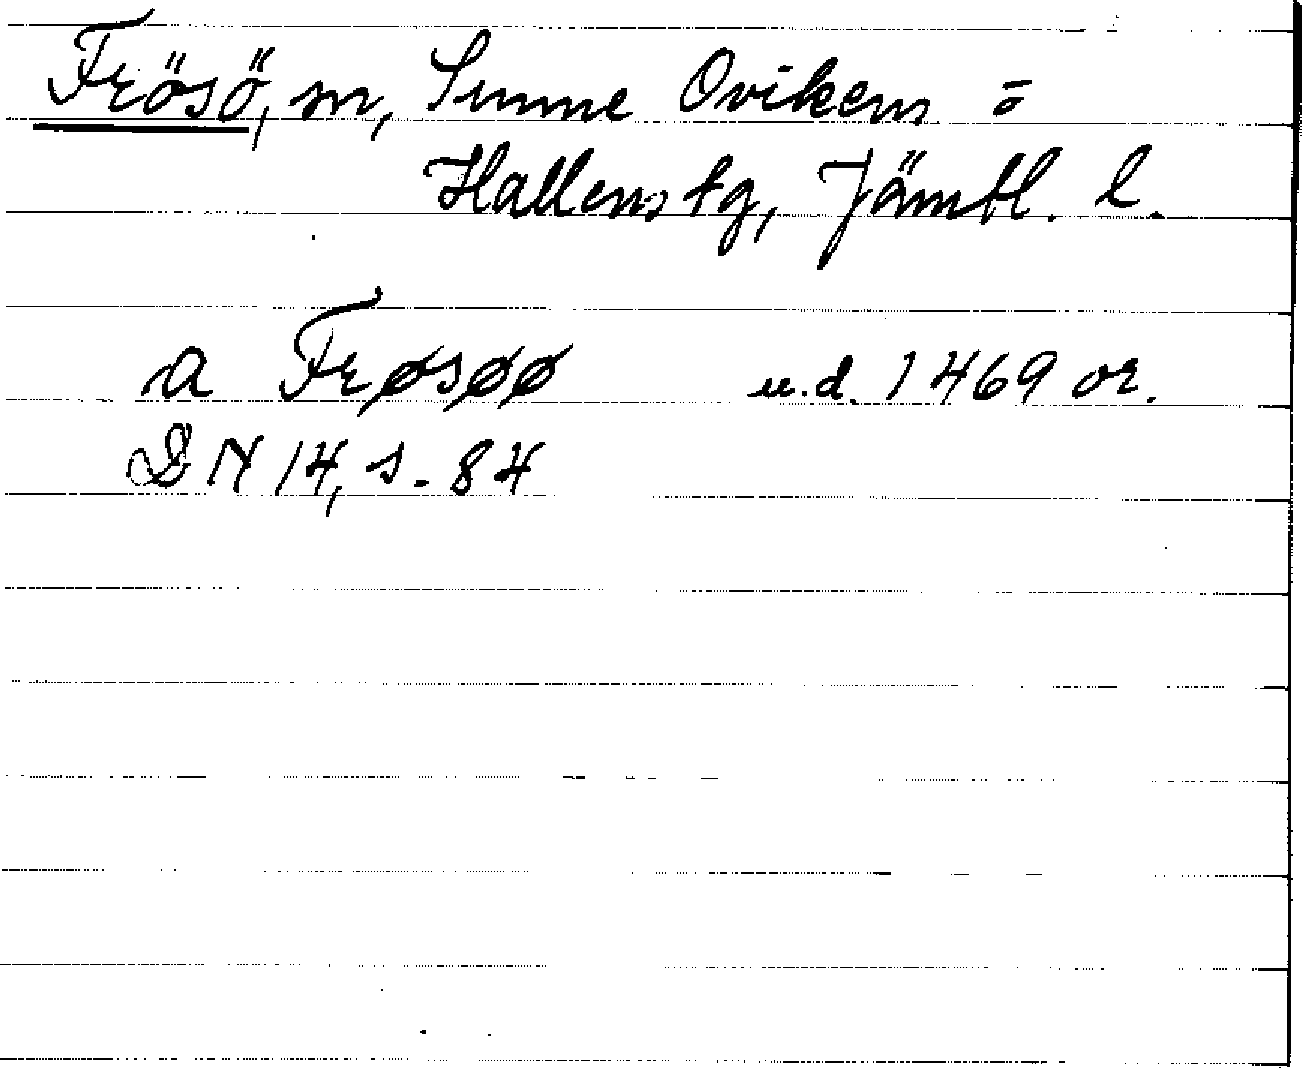 Frösö, sn, Sunne Oviken =
Hallens tg, Jämtl. l.
a Frøsøø u.d. 1469 or.
DN 14, s. 84